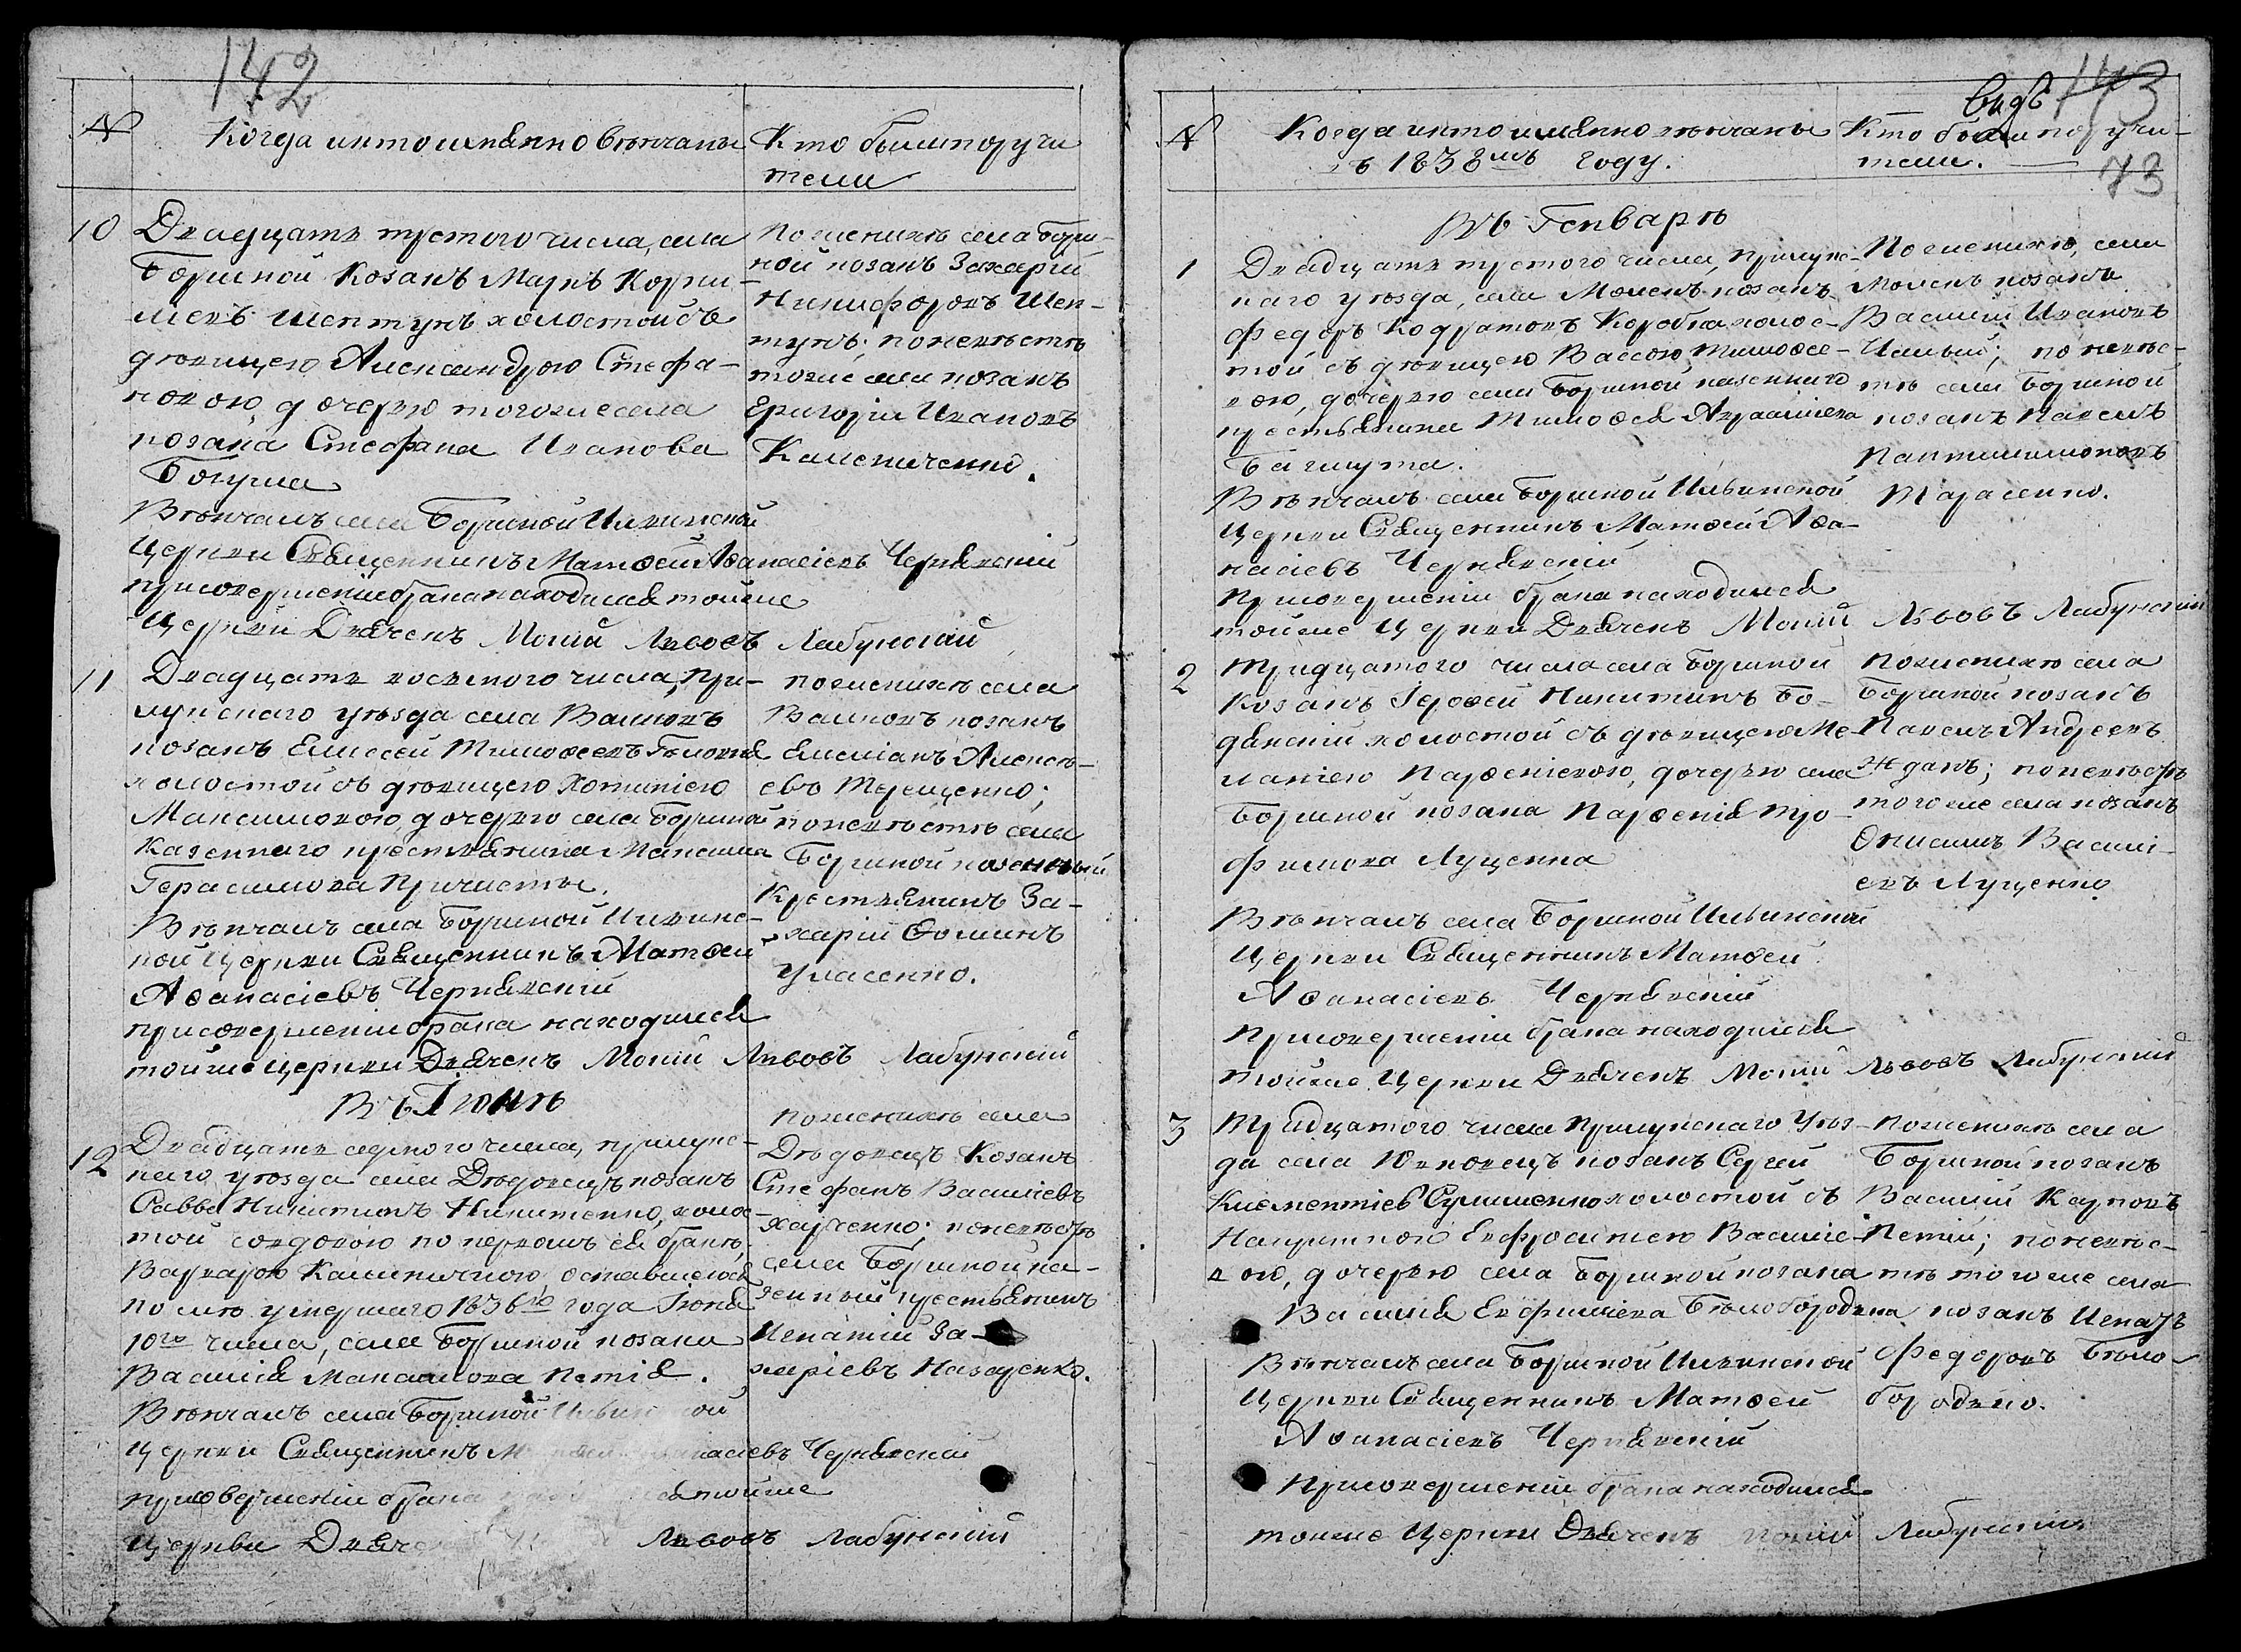 142
№
Когда и кто имянно венчаны
Кто были поручи
тели
10
Двадцать третого числа, села
Боршной Козакъ Марко Корни-
лиевъ Шептунъ холостой съ
девицею Александрою Стефа-
новою, дочерью тогоже села
козака Стефана Иванова
Бокума
Вѣнчалъ села Боршной Ильинской
Церкви Священникъ Матѳей Аѳанасіевъ Чернявскій
При совершеніи брака находился тойже
Церкви Дьячекъ Мокій Львовъ Лабунскій
По женихѣ села Борш-
ной козакъ Захарій
Никифоровъ Шеп-
тунъ; по невѣстѣ
тогоже села козакъ
Григорій Ивановъ
Калениченко.
11
Двадцать восьмого числа, При-
лукскаго уѣзда села Валковъ
козакъ Елисей Тимоѳеевъ Головня
холостой съ девицею Хотиніею
Максимовою, дочерью села Боршной
Казеннаго крестьянина Максима
Герасимова Причисты.
Вѣнчалъ села Боршной Ильинс-
кой Церкви Священникъ Матѳей
Аѳанасіевъ Чернявскій
При совершеніи брака находился
тойже Церкви Дьячекъ Мокій Львовъ Лабунскій
по женихѣ села
Валковъ козакъ
Емеліанъ Алексѣ-
евъ Терещенко;
по невѣстѣ села
Боршной казенный
Крестьянинъ За-
харій Ѳоминъ
Уласенко.
Въ Іюлѣ
12
Двадцать седмого числа, Прилукс-
каго уѣзда села Дѣдовецъ козакъ
Савва Никитинъ Никитенко, холос-
той со вдовою по первомъ ея бракѣ,
Варварою Калиничною, оставшеюся
послѣ умершаго 1836го года Іюня
10го числа, села Боршной козака
Василія Максимова Петія.
Вѣнчалъ села Боршной Ильинской
Церкви Священникъ Матѳей Аѳанасіевъ Чернявскій
При совершеніи брака находился тойже
Церкви Дьячекъ Мокій Львовъ Лабунскій
по женихѣ села
Дѣдовецъ Козакъ
Стефанъ Василіевъ
Харченко; по невѣстѣ
села Боршной ка-
зенный крестьянинъ
Игнатій За-
харіевъ Назаренко.
143
73
№
Когда и кто имянно венчаны
въ 1838мъ году.
Кто были поручи-
тели.
Въ Генварѣ
1
Двадцать третого числа, Прилукс-
каго уѣзда, села Мокіевъ козакъ
Федоръ Кодратовъ Коробка холос-
той съ девицею Вассою Тимоѳее-
вою, дочерью села Боршной казеннаго
крестьянина Тимоѳея Авраамиева
Багмута.
Вѣнчалъ села Боршной Ильинской
Церкви Священникъ Матѳей Аѳа-
насіевъ Чернявскій
При совершеніи брака находился
тойже Церкви Дьячекъ Мокій Львовъ Лабунскій
По женихѣ, села
козакъ
Василій Ивановъ
по невѣс-
тѣ села Боршной
козакъ Павелъ
Пантилимоновъ
Тарасенко.
2
Тридцатого числа села Боршной
Козакъ Іероѳей Никитинъ Бо-
дянскій холостой съ девицею Ме-
ланіею Парѳеніевою, дочерью села
Боршной козака Парѳенія Тро-
фимова Луценка
Вѣнчалъ села Боршной Ильинской
Церкви Священникъ Матѳей
Аѳанасіевъ Чернявскій
При совершеніи брака находился
тойже Церкви Дьячекъ Мокій Львовъ Лабунскій
По женихѣ села
Боршной козакъ
Павелъ Андреевъ
Жданъ; по невѣстѣ
тогоже села козакъ
Онисимъ Василі-
евъ Луценко
3
Тридцатого числа Прилукскаго Уѣз-
да села Юнковецъ козакъ Сергей
Климентіевъ Сулименко холостой съ
Ефросиніею Василіе-
вою, дочерью села Боршной козака
Василія Евфиміева Бѣлобородька
Вѣнчалъ села Боршной Ильинской
Церкви Священникъ Матѳей
Аѳанасіевъ Чернявскій
При совершеніи брака находился
тойже Церкви Дьячекъ Мокій Лабунскій
По женихѣ села
Боршной козакъ
Василій Карповъ
Петій; по невѣс-
тѣ тогоже села
козакъ Игнатъ
Федоровъ Бѣло-
бородько.